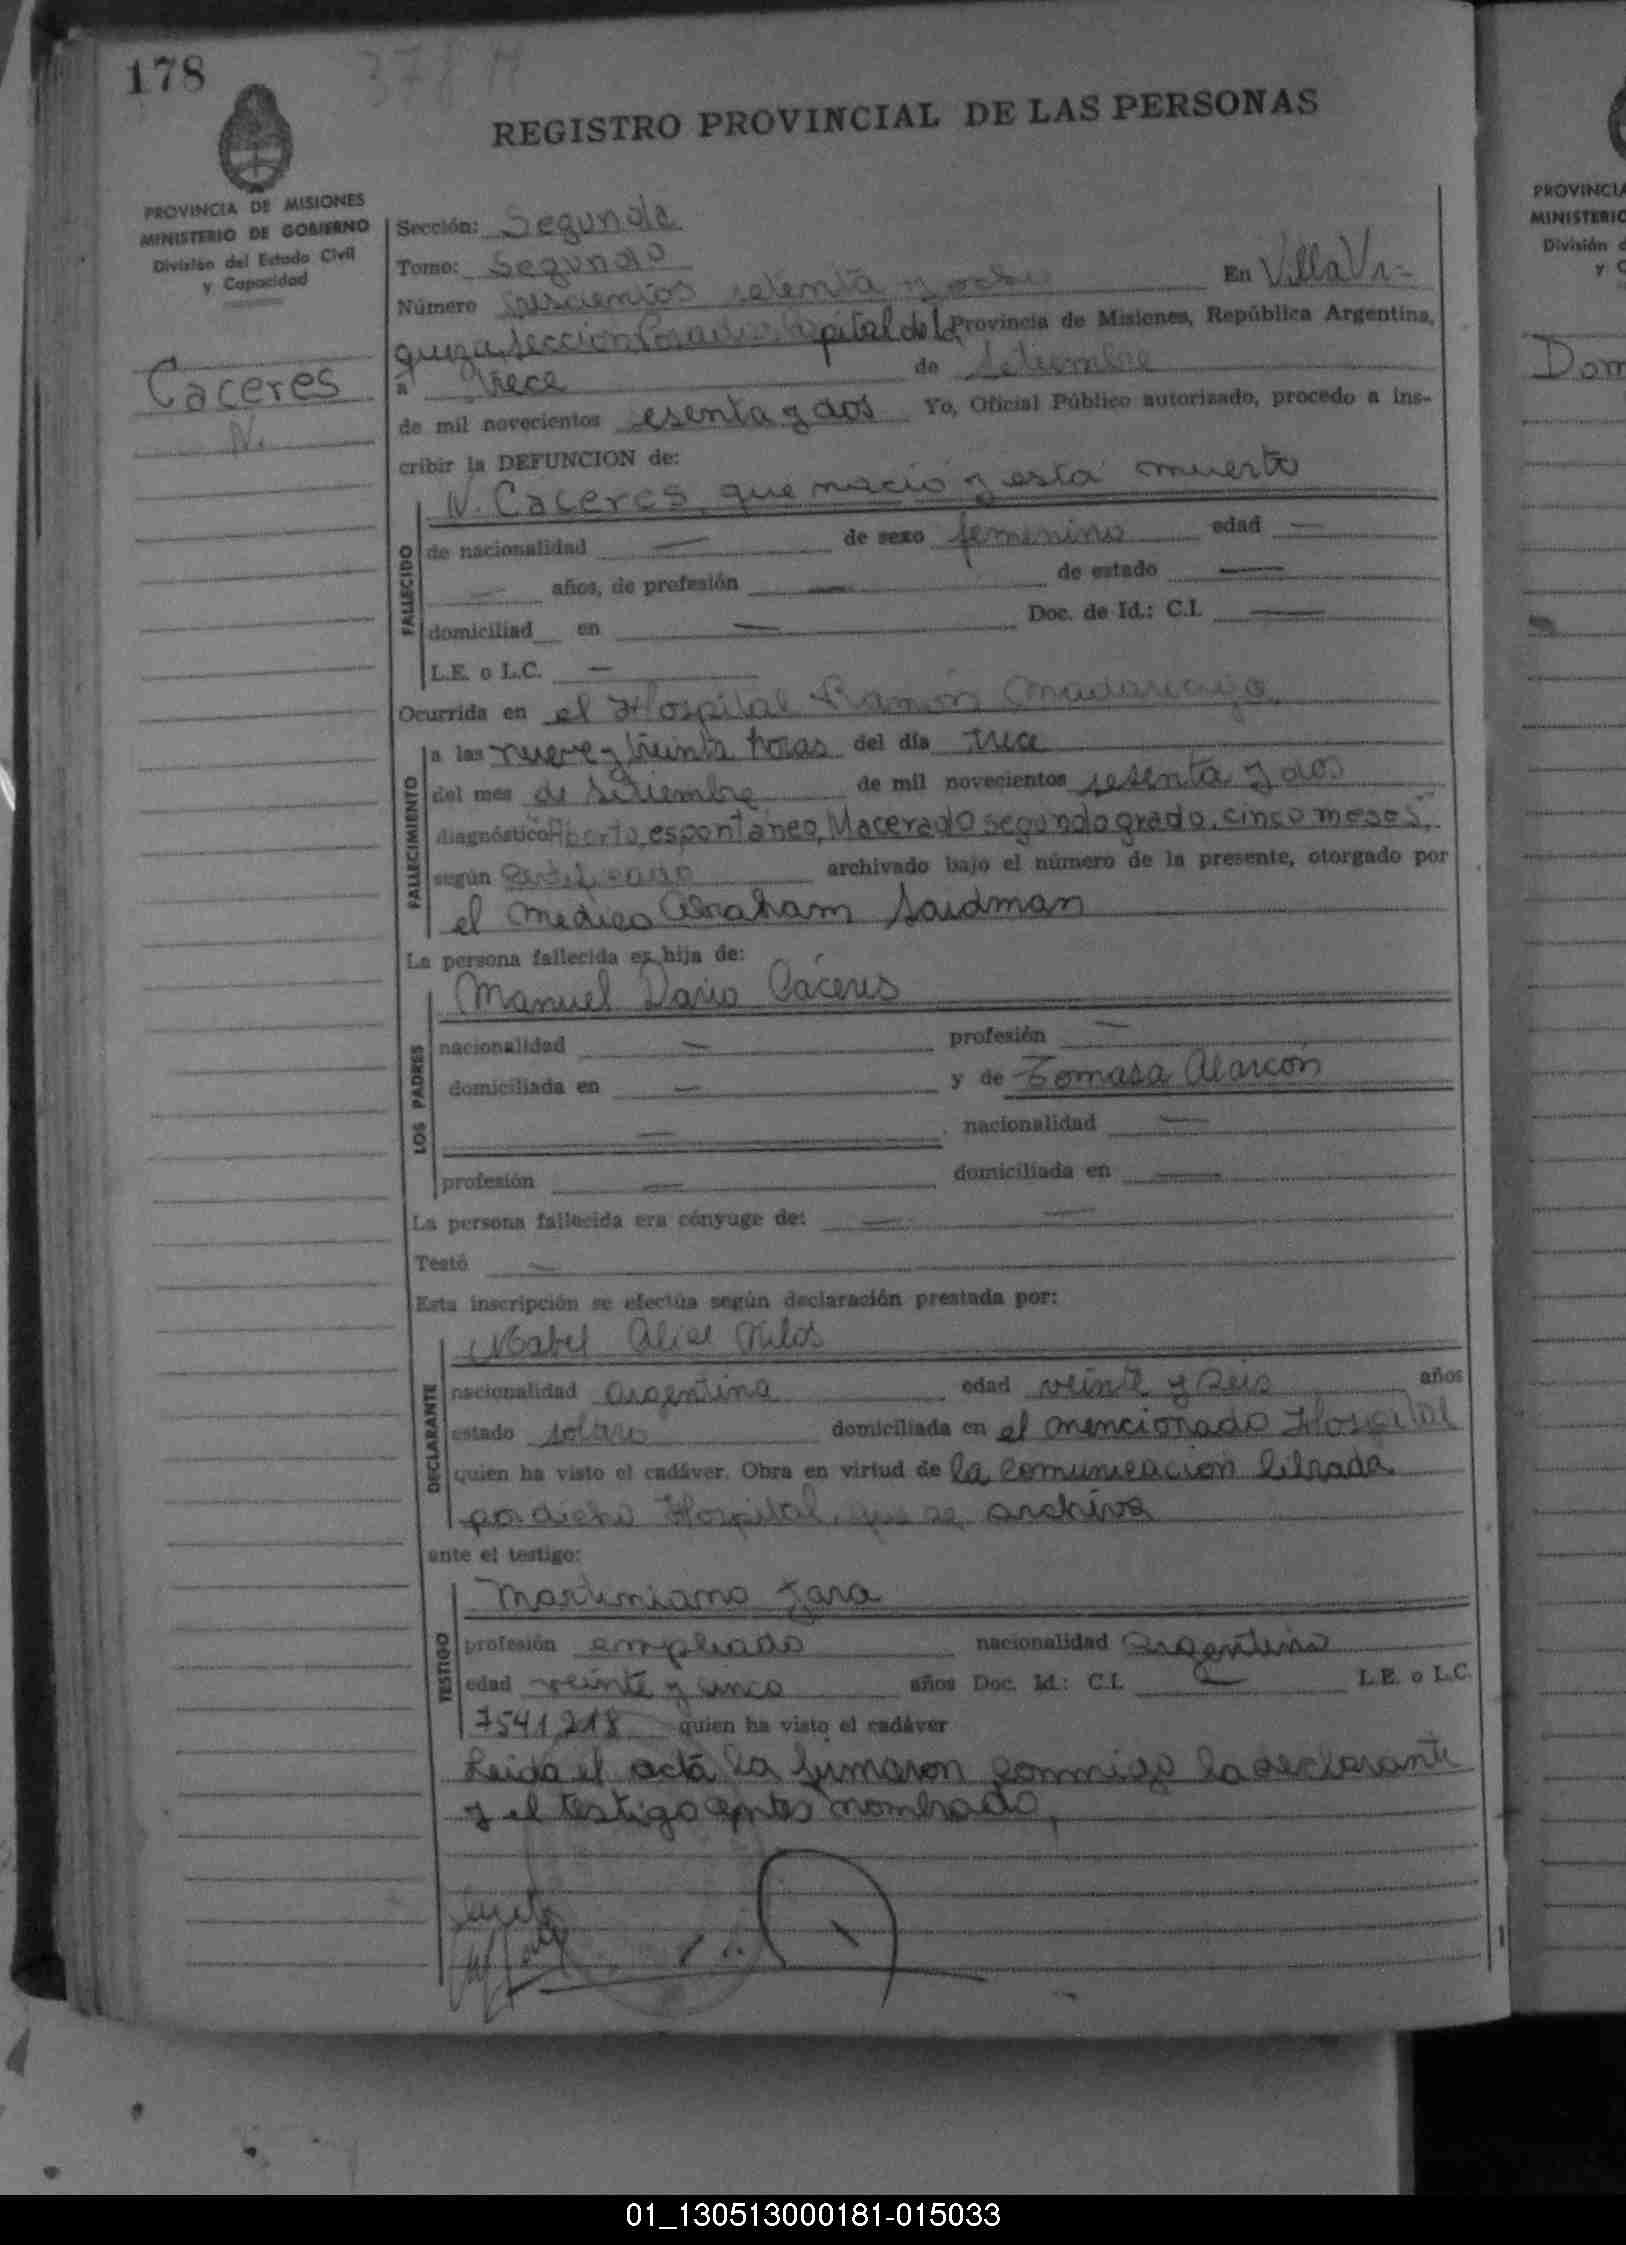 178
378 N
REGISTRO PROVINCIAL DE LAS PERSONAS
PROVINCIA DE MISIONES
MINISTERIO DE GOBIERNO
División del Estado Civil
y Capacidad
Caceres
N.
Sección: Segunda
Tomo: Segundo
Número Trescientos setenta y ocho En Villa Vi-
guiza, Sección Posadas Capital de la Provincia de Misiones, República Argentina,
a Trece de Setiembre
de mil novecientos sesenta y dos Yo, Oficial Público autorizado, procedo a ins-
cribir la DEFUNCION de:
N. Caceres, que nació y está muerto
FALLECIDO
de nacionalidad — de sexo femenino edad —
— años, de profesión — de estado —
domiciliad en — Doc. de Id.: C.I. —
L.E. o L.C. —
Ocurrida en el Hospital Ramón Madariaga,
FALLECIMIENTO
a las nueve y treinta horas del día trece
del mes de Setiembre de mil novecientos sesenta y dos
diagnóstico "Aborto, espontáneo, Macerado segundo grado, cinco meses",
según Certificado archivado bajo el número de la presente, otorgado por
el medico Abraham Saidman
La persona fallecida es hija de:
LOS PADRES
Manuel Dario Cáceres
nacionalidad — profesión —
domiciliada en — y de Tomasa Alarcón
— nacionalidad —
profesión — domiciliada en —
La persona fallecida era cónyuge de: — —
Testó —
Esta inscripción se efectúa según declaración prestada por:
DECLARANTE
Mabel Alice
nacionalidad argentina edad veinte y seis años
estado soltero domiciliada en el mencionado Hospital
quien ha visto el cadáver. Obra en virtud de la comunicación librada
por dicho Hospital, que se archiva
ante el testigo:
TESTIGO
Maximiano Jara
profesión empleado nacionalidad argentino
edad veinte y cinco años Doc. Id.: C.I. — L.E. o L.C.
7541218 quien ha visto el cadáver
Leida el acta la firmaron conmigo la declarante
y el testigo antes nombrado,
PROVINCIA
MINISTERIO
División d
y C
Dom
01_130513000181-015033